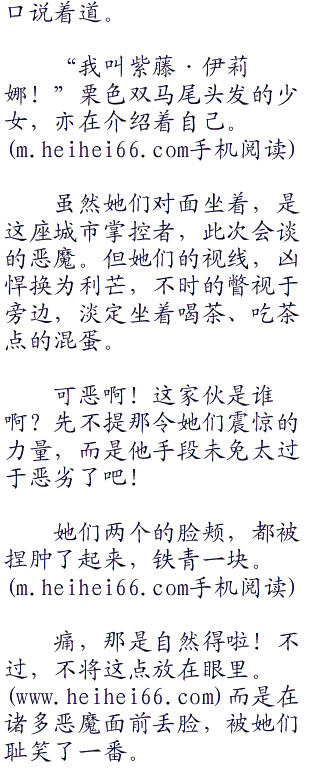 口说着道。
“我叫紫藤·伊莉
娜！”栗色双马尾头发的少
女，亦在介绍着自己。
(m.heihei66.com手机阅读)
虽然她们对面坐着，是
这座城市掌控者，此次会谈
的恶魔。但她们的视线，凶
悍换为利芒，不时的瞥视于
旁边，淡定坐着喝茶、吃茶
点的混蛋。
可恶啊！这家伙是谁
啊？先不提那令她们震惊的
力量，而是他手段未免太过
于恶劣了吧！
她们两个的脸颊，都被
捏肿了起来，铁青一块。
(m.heihei66.com手机阅读)
痛，那是自然得啦！不
过，不将这点放在眼里。
(www.heihei66.com)而是在
诸多恶魔面前丢脸，被她们
耻笑了一番。